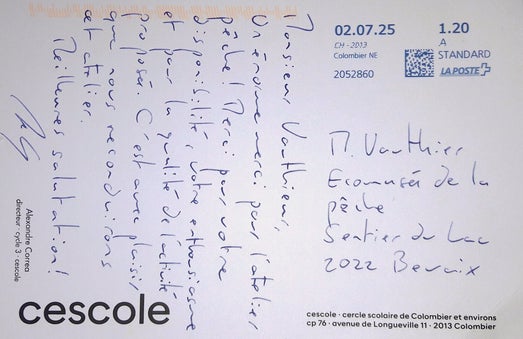 Monsieur Vauthier,
Un énorme merci pour l'atelier
pêche! Merci pour votre
disponibilité, votre enthousiasme
et pour la qualité de l'activité
proposée. C'est avec plaisir
que nous reconduirons
cet atelier.
Meilleures salutation!
Alexandre Correa
directeur · cycle 3 · cescole
02.07.25
CH - 2013
Colombier NE
2052860
1.20
A
STANDARD
LA POSTE
M. Vauthier
Ecomusée de la
pêche
Sentier du Lac
2022 Bevaix
cescole
cescole · cercle scolaire de Colombier et environs
cp 76 · avenue de Longueville 11 · 2013 Colombier